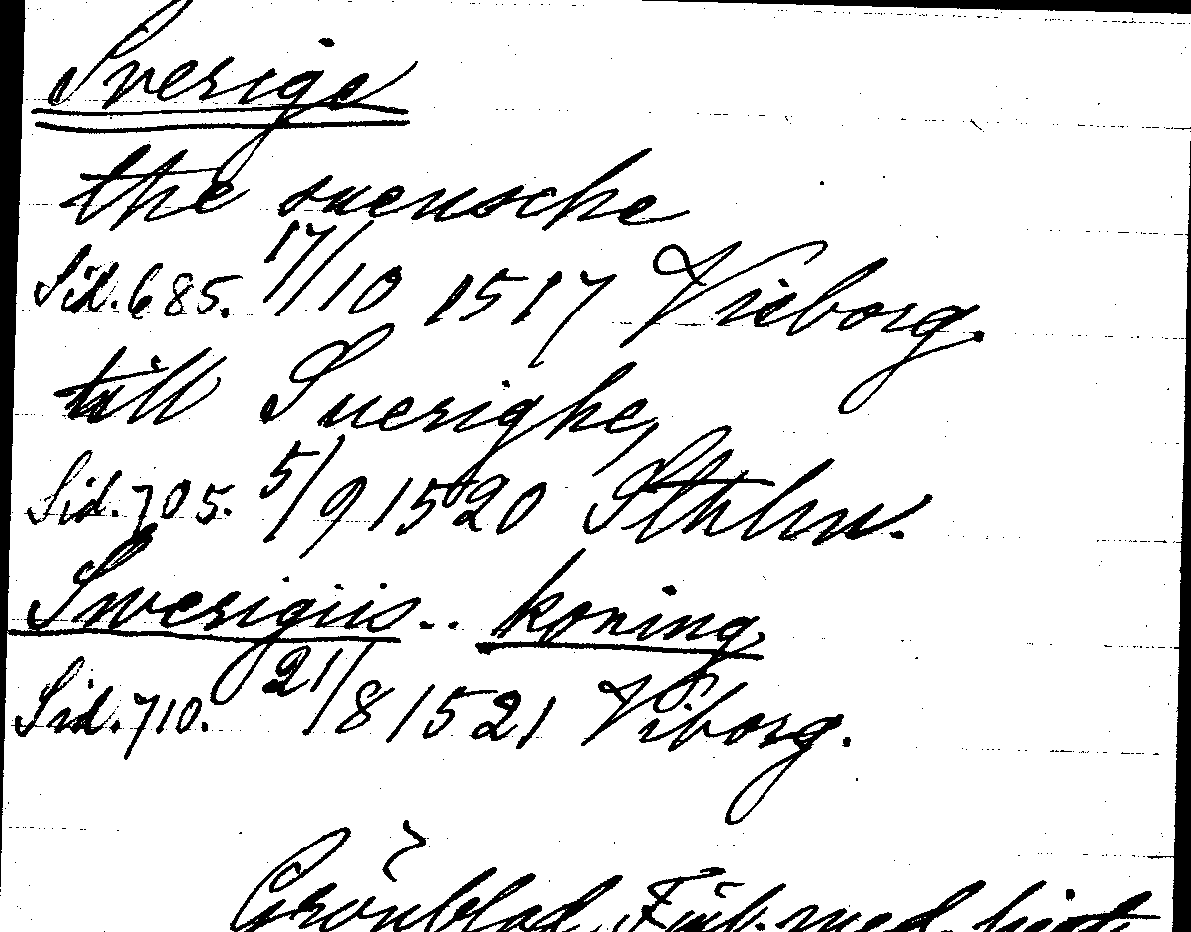 Sverige
the suensche
Sid. 685. 17/10 1517 Viborg.
till Suerighe,
Sid. 705. 5/9 1520 Sthlm.
Swerigiis.. koning
Sid. 710. 21/8 1521 Viborg.
Grönblad, Finl. med.